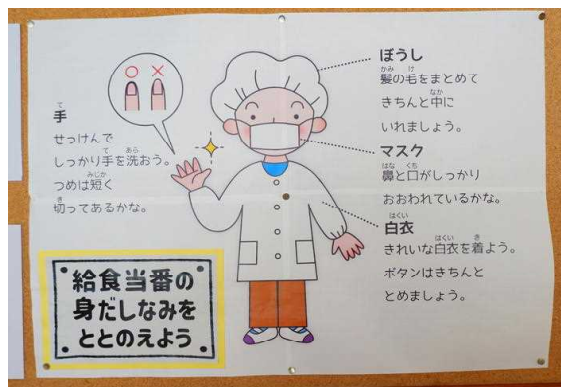 手
せっけんで
しっかり手を洗おう。
つめは短く
切ってあるかな。
ぼうし
髪の毛をまとめて
きちんと中に
いれましょう。
マスク
鼻と口がしっかり
おおわれているかな。
白衣
きれいな白衣を着よう。
ボタンはきちんと
とめましょう。
給食当番の
身だしなみを
ととのえよう